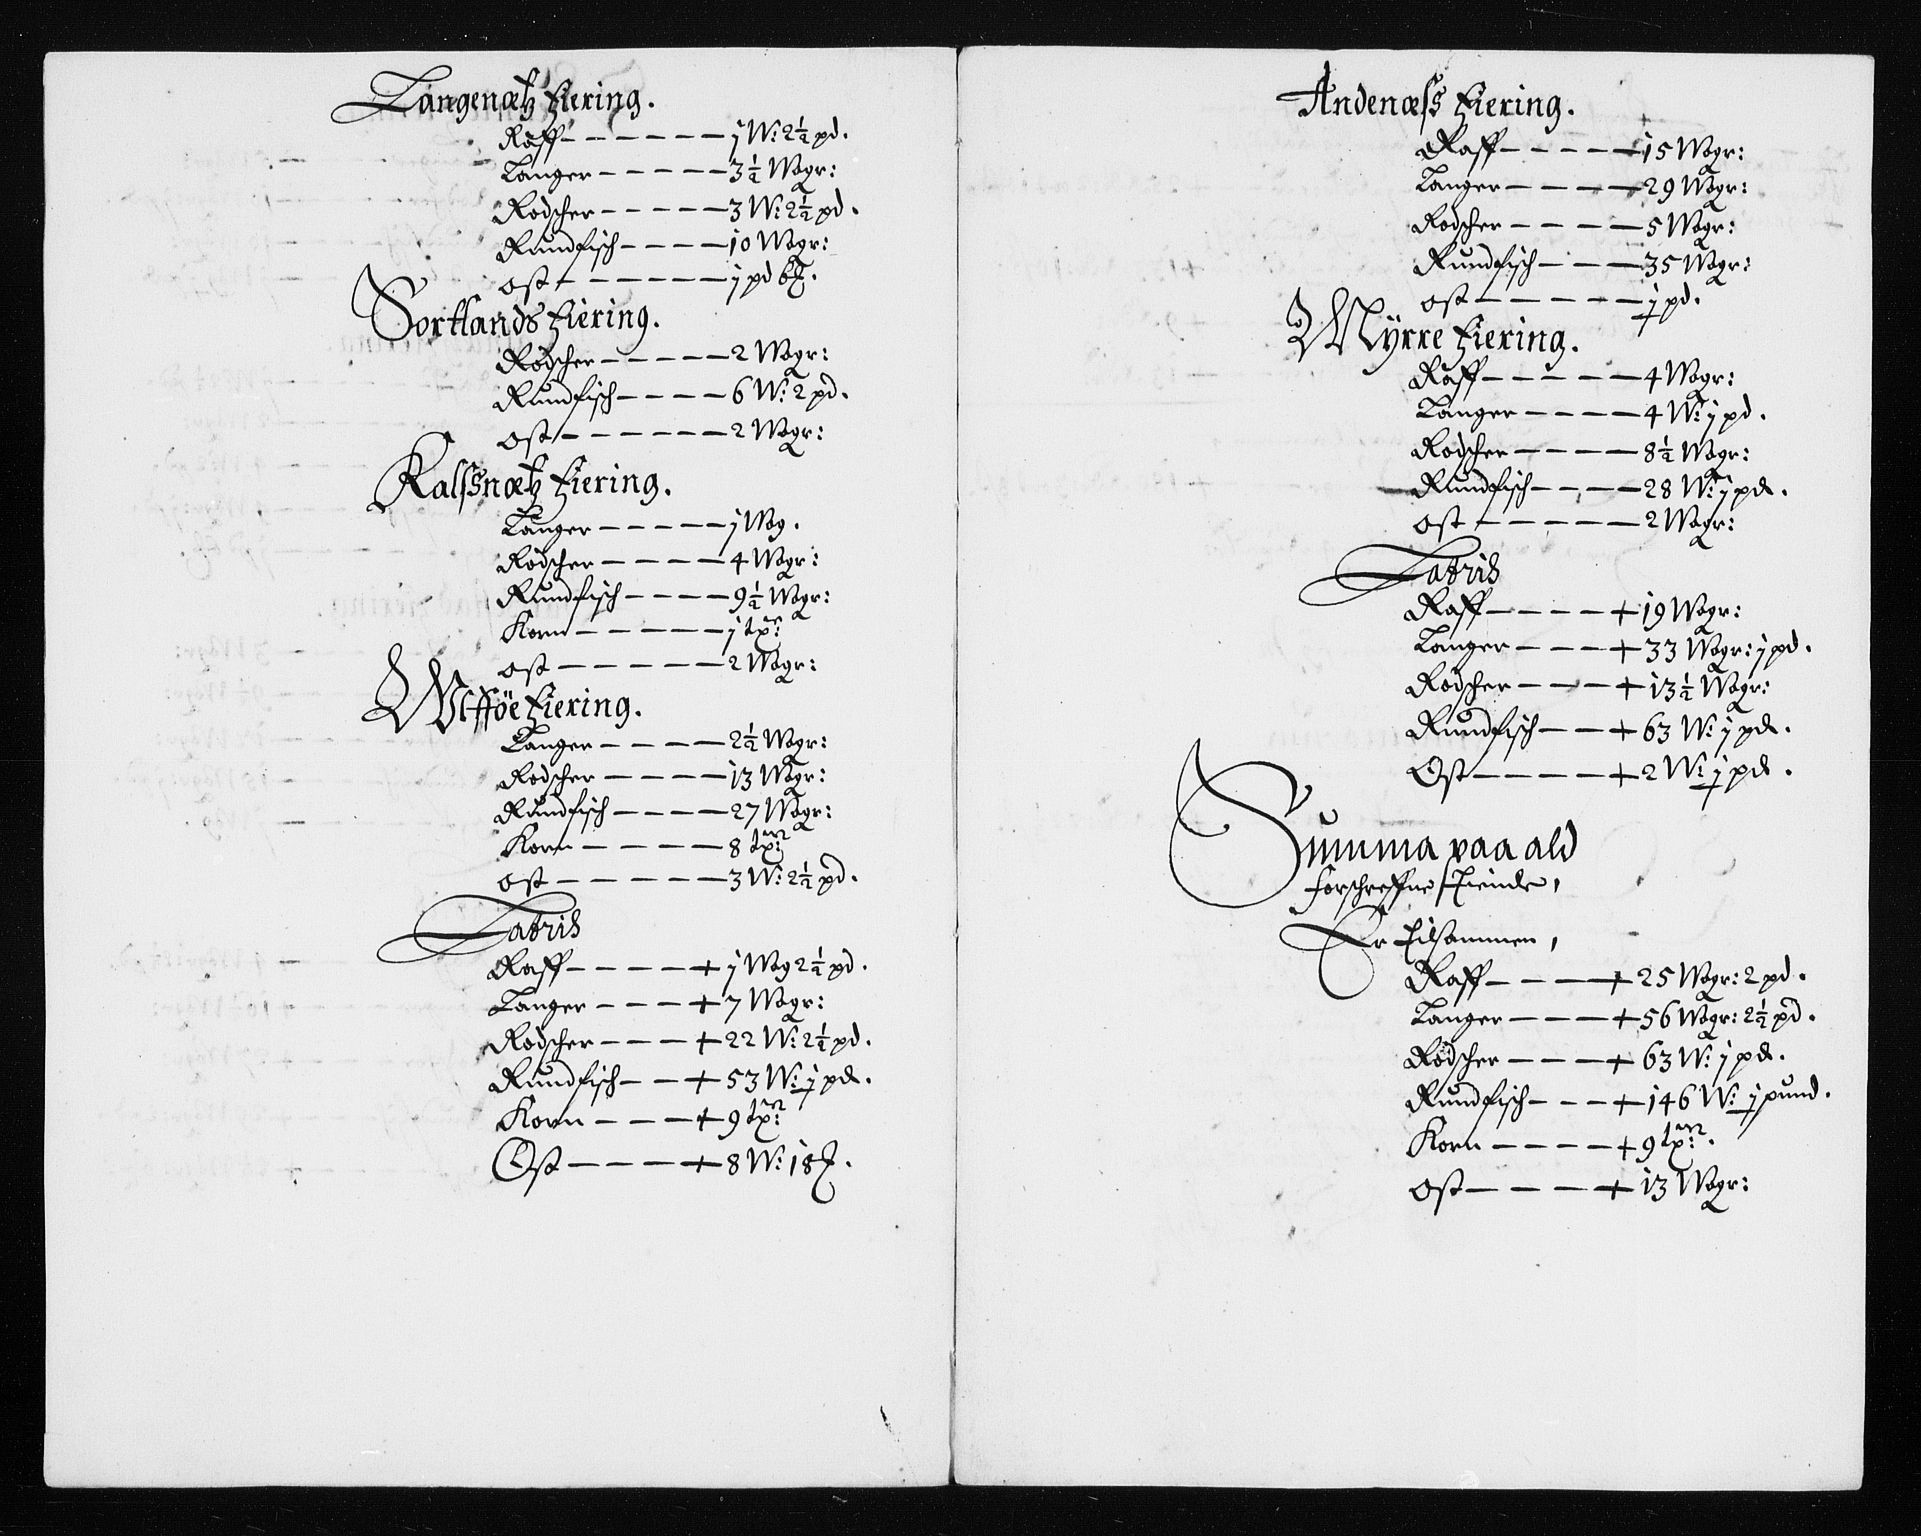 Langenætz fiering.
Raff – – – – – – j W: 2½ pd.
Langer – – – – – 3½ Wogr:
Rodscher – – – – – 3 W: 2½ pd.
Rundfisch – – – – 10 Wogr:
ost – – – – – – j pd 6 ℔.
Sortlands fiering.
Rodscher – – – – – 2 Wogr:
Rundfisch – – – – 6 W: 2 pd.
ost – – – – – – 2 Wogr:
Kalssnætz fiering.
Langer – – – – – j Wog.
Rodscher – – – – – 4 Wogr:
Rundfisch – – – – 9½ Wogr:
Korn – – – – – j tøn:
ost – – – – – 2 Wogr:
Ulfföe fiering.
Langer – – – – 2½ Wogr:
Rodscher – – – – 13 Wogr:
Rundfisch – – – – 27 Wogr:
Korn – – – – 8 tøn:
ost – – – – – 3 W: 2½ pd.
Latris
Raff – – – – + j Wog 2½ pd.
Langer – – – + 7 Wogr:
Rodscher – – – + 22 W: 2½ pd.
Rundfisch – – + 53 W: j pd.
Korn – – – + 9 tøn:
Ost – – – – + 8 W: 18 ℔.
Andenæss fiering.
Raff – – – – – 15 Wogr:
Langer – – – – 29 Wogr:
Rodscher – – – – 5 Wogr:
Rundfisch – – – 35 Wogr:
ost – – – – – j pd.
Myrre fiering.
Raff – – – – – 4 Wogr:
Langer – – – – 4 W: j pd.
Rodscher – – – – 8½ Wogr:
Rundfisch – – – – 28 W: j pd.
ost – – – – – 2 Wogr:
Latris
Raff – – – – + 19 Wogr:
Langer – – – + 33 Wogr: j pd.
Rodscher – – – + 13½ Wogr:
Rundfisch – – + 63 W: j pd.
Ost – – – – + 2 W: j pd.
Summa paa ald
forschreffne Tiende,
Er tilsammen,
Raff – – – – + 25 Wogr: 2 pd.
Langer – – – + 56 Wogr: 2½ pd.
Rodscher – – – + 63 W: j pd.
Rundfisch – – – + 146 W: j pund.
Korn – – – – + 9 tøn:.
ost – – – – + 13 Wogr: